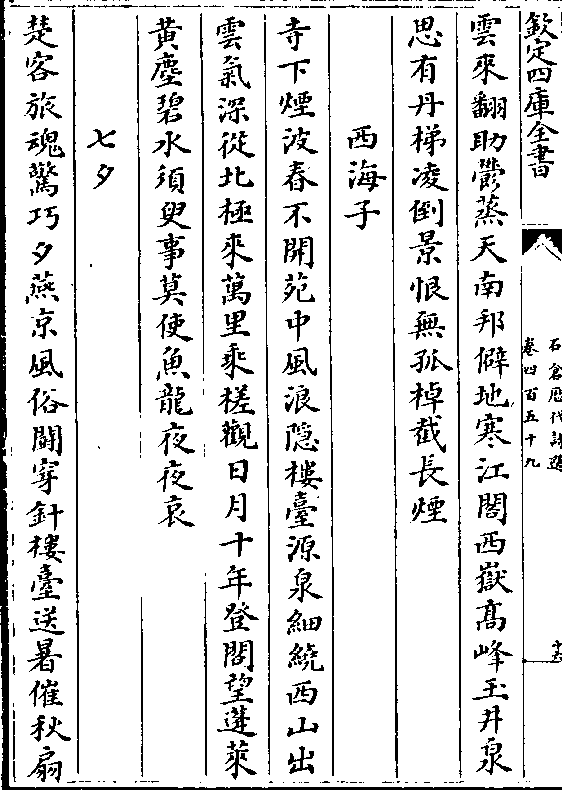 欽定四庫全書
石倉歷代詩選
卷四百五十九
雲來翻助鬱蒸天南邦僻地寒江閣西嶽高峰玉井泉
思有丹梯凌倒景恨無孤棹截長煙
西海子
寺下煙波春不開苑中風浪隱樓臺源泉細繞西山出
雲氣深從北極來萬里乘槎觀日月十年登閣望蓬萊
黃塵碧水須臾事莫使魚龍夜夜哀
七夕
楚客旅魂驚巧夕燕京風俗鬭穿針樓臺送暑催秋扇